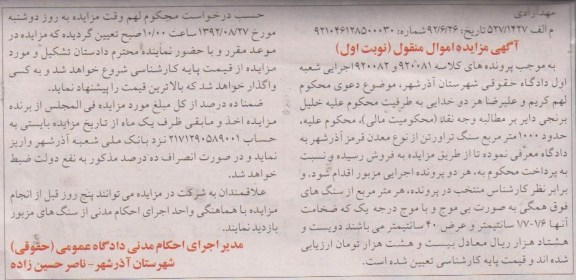 مهدآزادی
م الف ۵۲۷/۱۴۲۷ تاریخ: ۹۲/۶/۲۶ شماره: ۹۲۱۰۴۶۱۲۸۵۰۰۰۳۰
آگهی مزایده اموال منقول (نوبت اول)
به موجب پرونده های کلاسه ۹۲۰۰۸۱ و ۹۲۰۰۸۲ اجرایی شعبه
اول دادگاه حقوقی شهرستان آذرشهر، موضوع دعوی محکوم
لهم کریم و علیرضا هر دو خدایی به طرفیت محکوم علیه خلیل
برنجی دایر بر مطالبه وجه نقد (محکومیت مالی)، محکوم علیه،
حدود ۱۰۰۰ متر مربع سنگ تراورتن از نوع معدن قرمز آذرشهر به
دادگاه معرفی نموده تا از طریق مزایده به فروش رسیده و نسبت
به پرداخت محکوم به، هر دو پرونده اجرایی مزبور اقدام شود، و
برابر نظر کارشناس منتخب در پرونده، هر متر مربع از سنگ های
فوق همگی به صورت بی موج و با موج درجه یک که ضخامت
آنها ۱/۷۶-۱۷ سانتیمتر و عرض ۴۰ سانتیمتر می باشند دویست و
هشتاد هزار ریال معادل بیست و هشت هزار تومان ارزیابی
شده اند و قیمت پایه کارشناسی تعیین شده است.
حسب درخواست محکوم لهم وقت مزایده به روز دوشنبه
مورخ ۱۳۹۲/۰۸/۲۷ ساعت ۱۰/۰۰ صبح تعیین گردیده که مزایده در
موعد مقرر و با حضور نماینده محترم دادستان تشکیل و مورد
مزایده از قیمت پایه کارشناسی شروع خواهد شد و به کسی
واگذار خواهد شد که بالاترین قیمت را پیشنهاد نماید.
ضمنا ده درصد از کل مبلغ مورد مزایده فی المجلس از برنده
مزایده اخذ و مابقی ظرف یک ماه از تاریخ مزایده بایستی به
حساب ۲۱۷۱۲۹۰۵۸۹۰۰۱ نزد بانک ملی شعبه آذرشهر واریز
نماید و در صورت انصراف ده درصد مذکور به نفع دولت ضبط
خواهد شد.
علاقمندان به شرکت در مزایده می توانند پنج روز قبل از انجام
مزایده با هماهنگی واحد اجرای احکام مدنی از سنگ های مزبور
بازدید نمایند.
مدیر اجرای احکام مدنی دادگاه عمومی (حقوقی)
شهرستان آذرشهر- ناصر حسین زاده